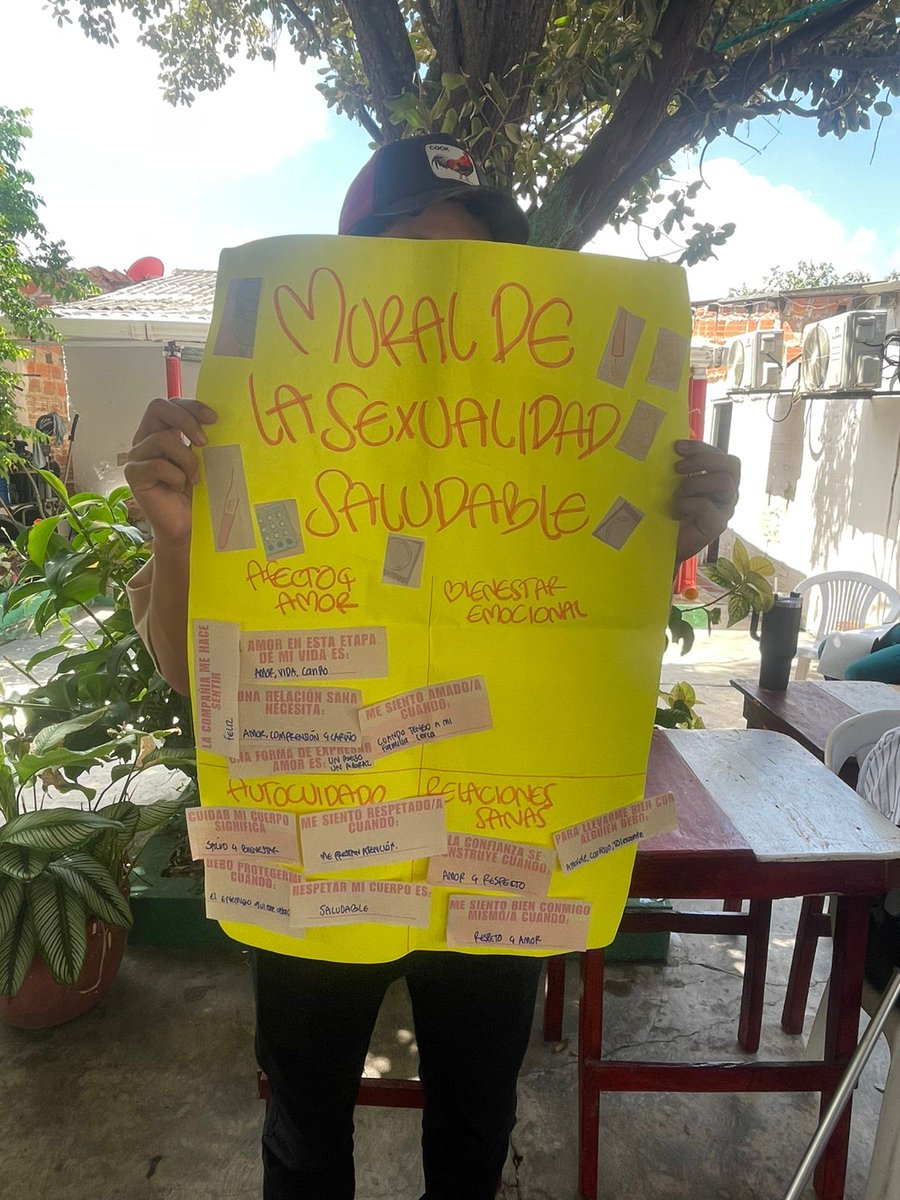 COCK
MURAL DE
LA SEXUALIDAD
SALUDABLE
AFECTO Y
AMOR
LA COMPAÑIA ME HACE
SENTIR
FELIZ
AMOR EN ESTA ETAPA
DE MI VIDA ES:
AMOR, VIDA, CARIÑO
UNA RELACIÓN SANA
NECESITA:
AMOR, COMPRENSIÓN Y CARIÑO
ME SIENTO AMADO/A
CUANDO:
CUANDO TENGO A MI
FAMILIA CERCA
UNA FORMA DE EXPRESAR
AMOR ES: UN BESO
UN ABRAZO
BIENESTAR
EMOCIONAL
AUTOCUIDADO
CUIDAR MI CUERPO
SIGNIFICA
SALUD Y BIENESTAR
ME SIENTO RESPETADO/A
CUANDO:
ME PRESTAN ATENCIÓN.
DEBO PROTEGERME
CUANDO:
EL ENEMIGO
RESPETAR MI CUERPO ES:
SALUDABLE
RELACIONES
SANAS
LA CONFIANZA SE
NSTRUYE CUANDO:
AMOR Y RESPETO
PARA LLEVARME BIEN CON
ALGUIEN DEBO,
ME SIENTO BIEN CONMIGO
MISMO/A CUANDO:
RESPETO Y AMOR